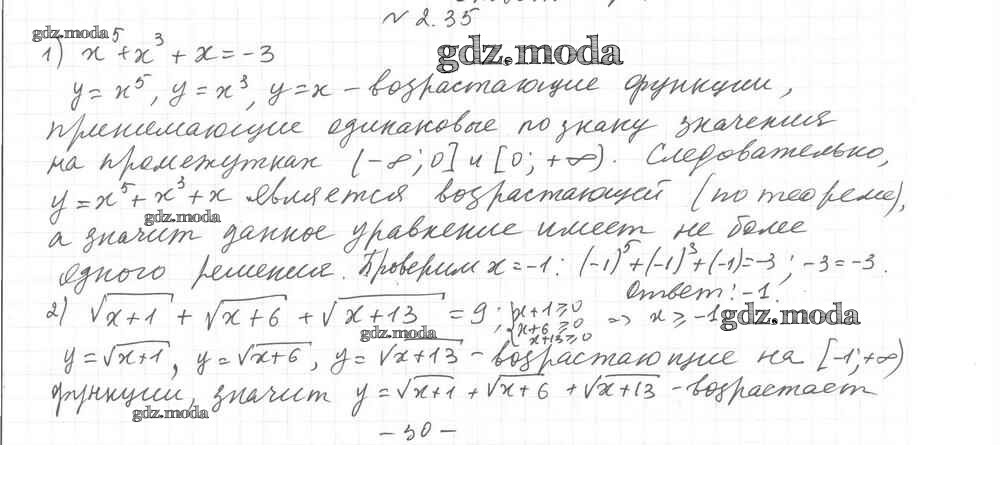 № 2.35
gdz.moda
gdz.moda
1) x⁵ + x³ + x = -3
y = x⁵, y = x³, y = x – возрастающие функции,
принимающие одинаковые по знаку значения
на промежутках (-∞; 0] и [0; +∞). Следовательно,
y = x⁵ + x³ + x является возрастающей (по теореме),
gdz.moda
а значит данное уравнение имеет не более
одного решения. Проверим x = -1: (-1)⁵ + (-1)³ + (-1) = -3; -3 = -3.
Ответ: -1.
2) √x+1 + √x+6 + √x+13 = 9; { x+1 ≥ 0 x+6 ≥ 0 x+13 ≥ 0 => x ≥ -1
gdz.moda
gdz.moda
y = √x+1, y = √x+6, y = √x+13 – возрастающие на [-1; +∞)
функции, значит y = √x+1 + √x+6 + √x+13 – возрастает
gdz.moda
- 30 -